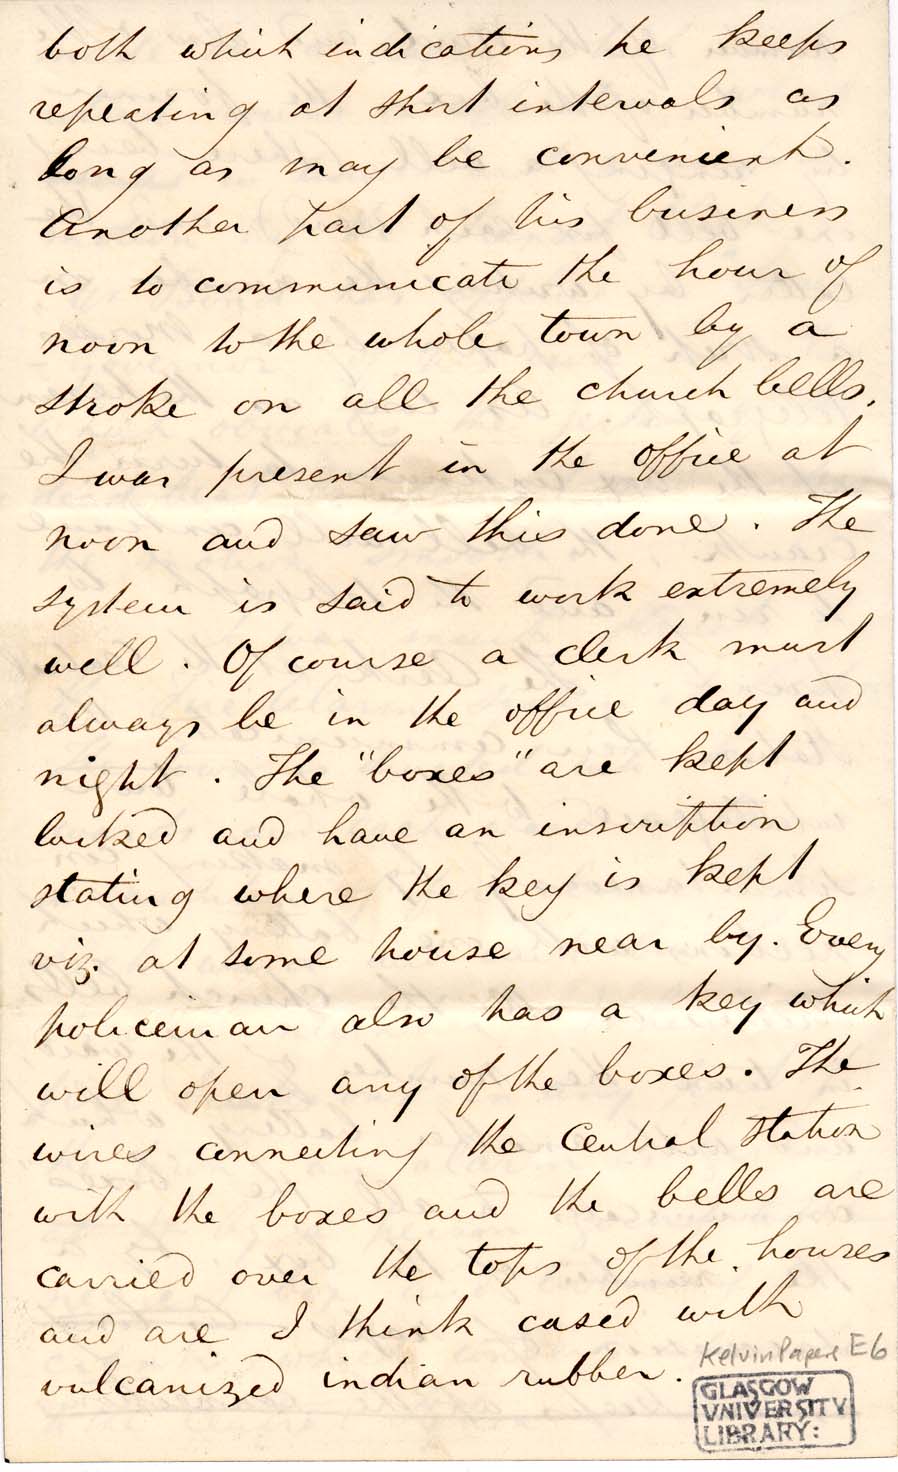 both which indications he keeps
repeating at short intervals as
long as may be convenient.
Another part of his business
is to communicate the hour of
noon to the whole town by a
stroke on all the church bells.
I was present in the office at
noon and saw this done. The
system is said to work extremely
well. Of course a clerk must
always be in the office day and
night. The "boxes" are kept
locked and have an inscription
stating where the key is kept
viz. at some house near by. Every
policeman also has a key which
will open any of the boxes. The
wires connecting the Central Station
with the boxes and the bells are
carried over the tops of the houses
and are I think cased with
vulcanized indian rubber.
Kelvin Papers E6
GLASGOW
UNIVERSITY
LIBRARY: